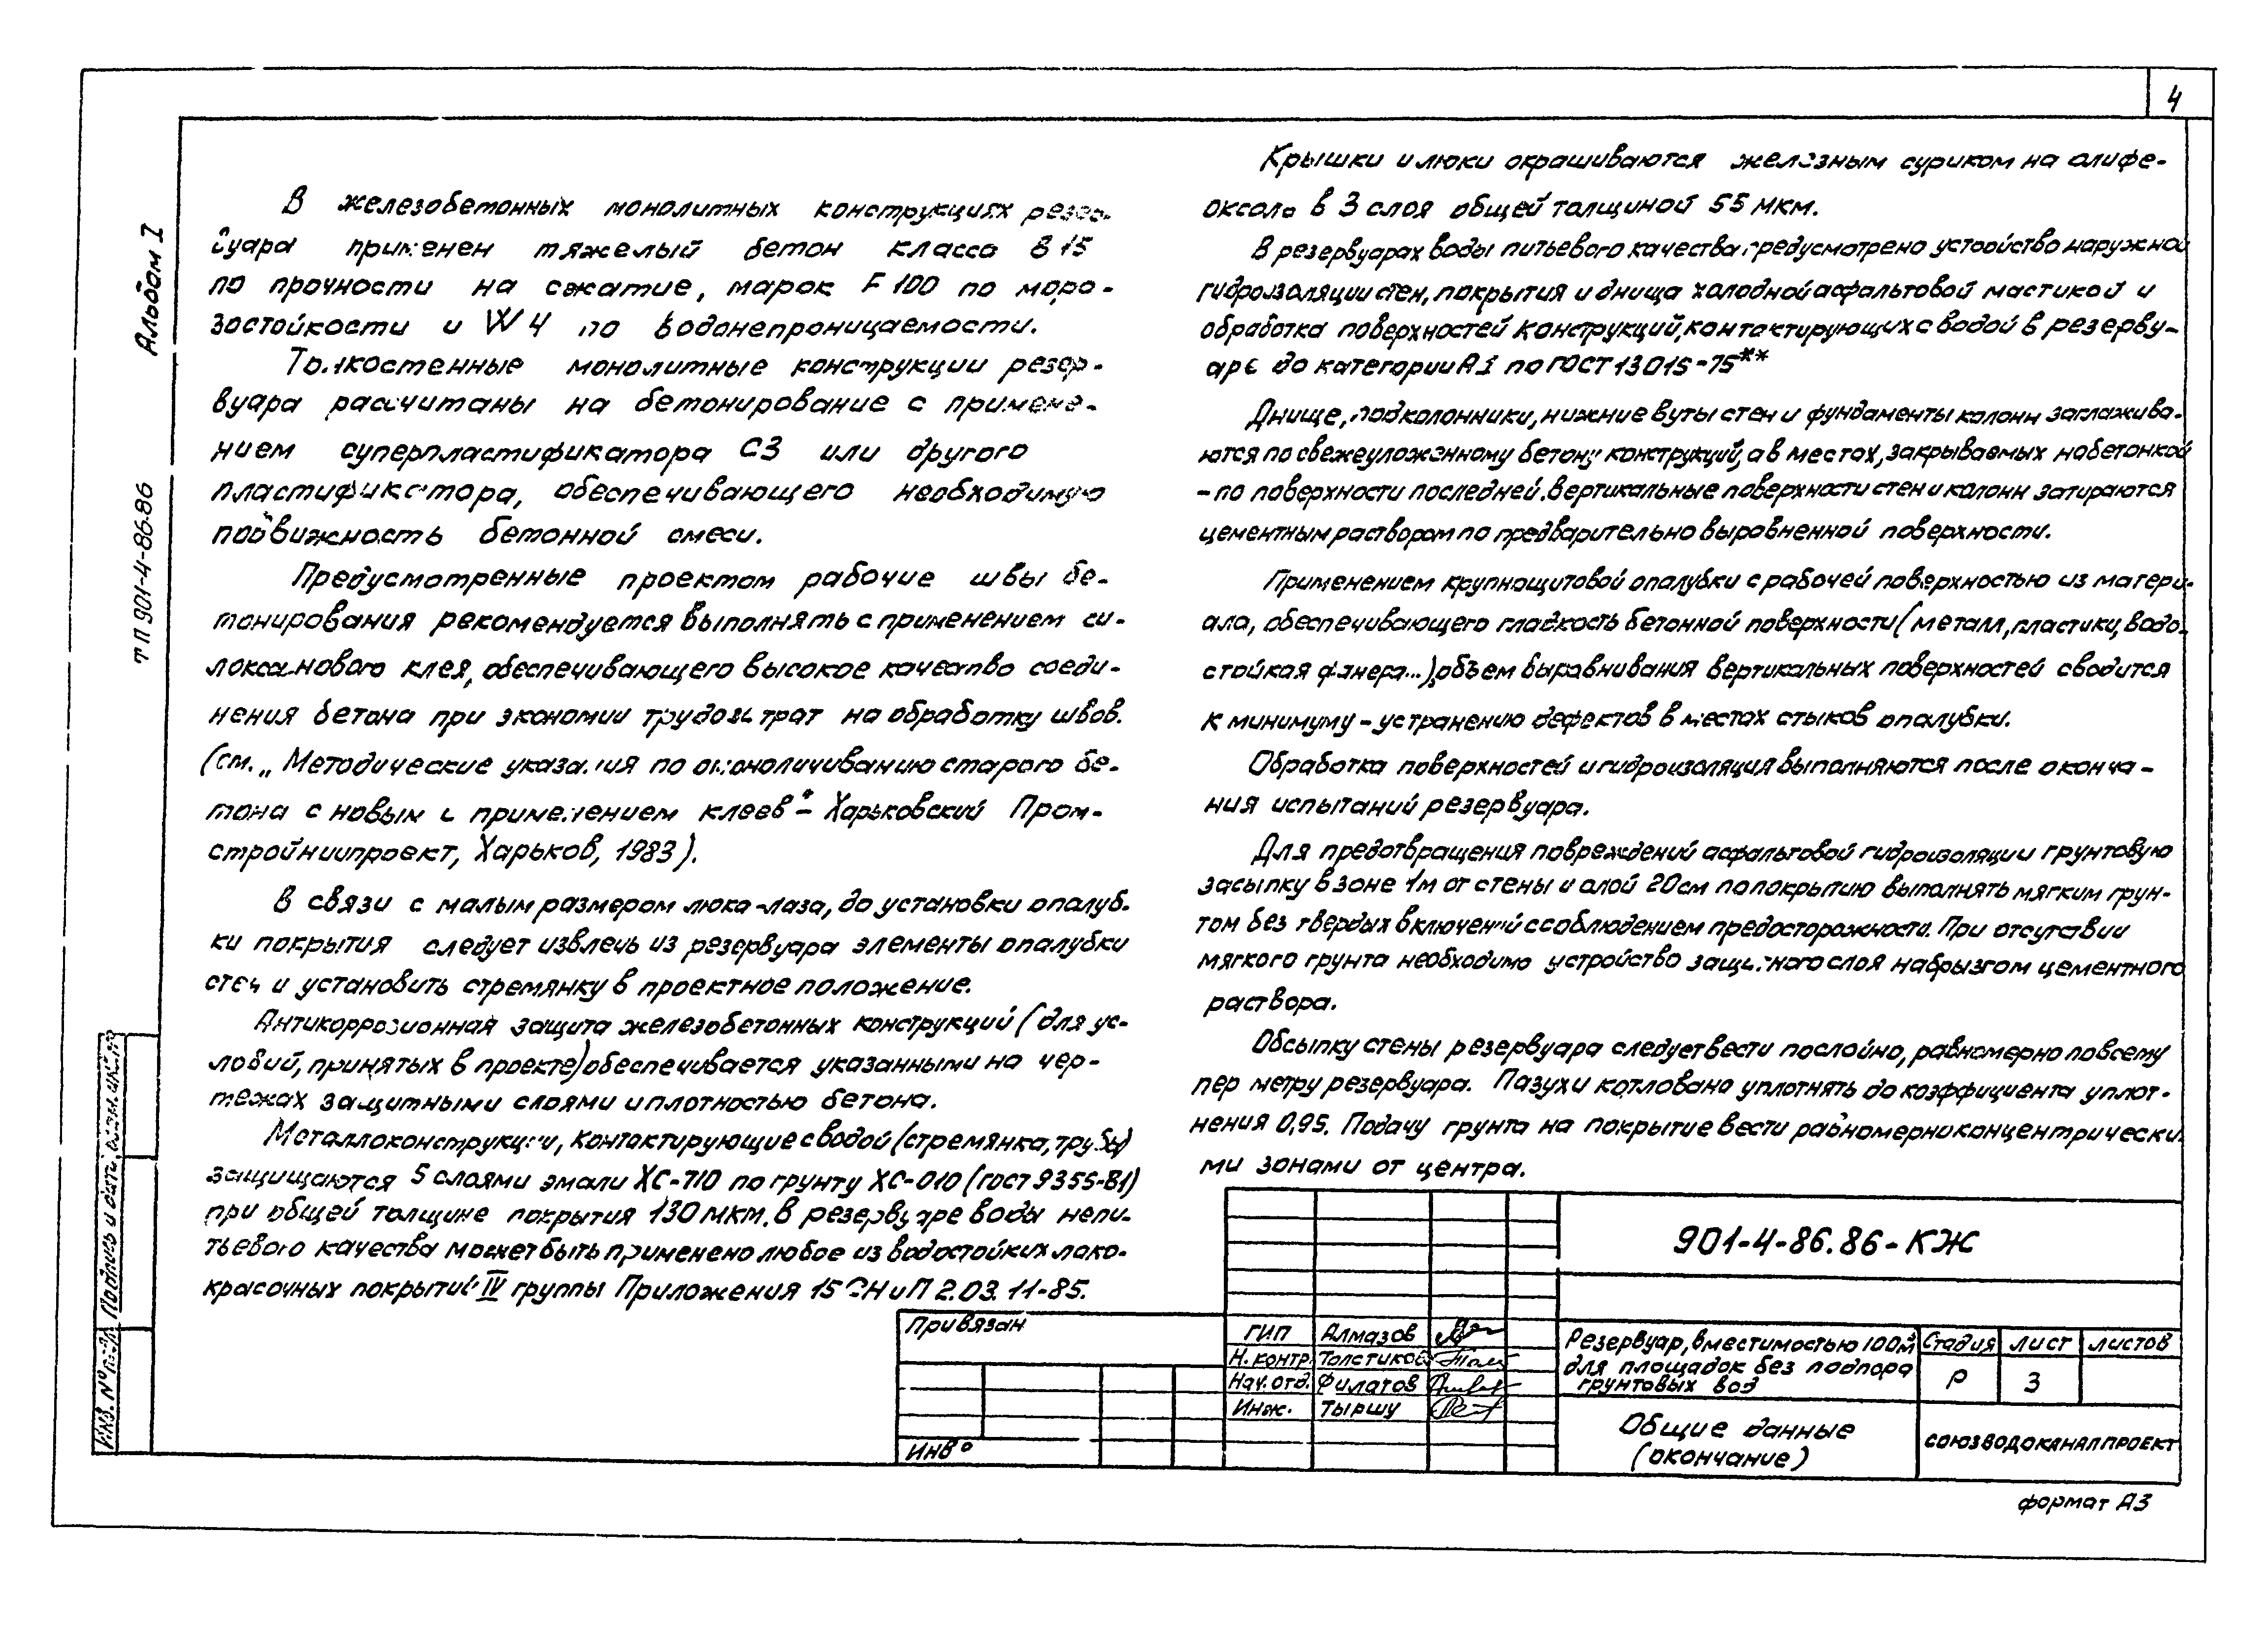 4
Альбом I
ТП 901-4-86.86
В железобетонных монолитных конструкциях резер-
вуара применен тяжелый бетон класса В 15
по прочности на сжатие, марок F 100 по моро-
зостойкости и W 4 по водонепроницаемости.
Тонкостенные монолитные конструкции резер-
вуара рассчитаны на бетонирование с примене-
нием суперпластификатора С3 или другого
пластификатора, обеспечивающего необходимую
подвижность бетонной смеси.
Предусмотренные проектом рабочие швы бе-
тонирования рекомендуется выполнять с применением си-
локсанового клея, обеспечивающего высокое качество соеди-
нения бетона при экономии трудозатрат на обработку швов.
(см. „Методические указания по омоноличиванию старого бе-
тона с новым с применением клеев" – Харьковский Пром-
стройниипроект, Харьков, 1983).
В связи с малым размером люка-лаза, до установки опалуб-
ки покрытия следует извлечь из резервуара элементы опалубки
стен и установить стремянку в проектное положение.
Антикоррозионная защита железобетонных конструкций (для ус-
ловий, принятых в проекте) обеспечивается указанными на чер-
тежах защитными слоями и плотностью бетона.
Металлоконструкции, контактирующие с водой (стремянка, трубы)
защищаются 5 слоями эмали ХС-710 по грунту ХС-010 (ГОСТ 9355-81)
при общей толщине покрытия 130 мкм. В резервуаре воды непи-
тьевого качества может быть применено любое из водостойких лако-
красочных покрытий IV группы Приложения 15 СНиП 2.03.11-85.
Крышки и люки окрашиваются железным суриком на олифе-
оксоль в 3 слоя общей толщиной 55 мкм.
В резервуарах воды питьевого качества предусмотрено устройство наружной
гидроизоляции стен, покрытия и днища холодной асфальтовой мастикой и
обработка поверхностей конструкций, контактирующих с водой в резерву-
аре до категории А1 по ГОСТ 13015-75**
Днище, подколонники, нижние вуты стен и фундаменты колонн заглажива-
ются по свежеуложенному бетону конструкций, а в местах, закрываемых набетонкой
– по поверхности последней. Вертикальные поверхности стен и колонн затираются
цементным раствором по предварительно выравненной поверхности.
Применением крупнощитовой опалубки с рабочей поверхностью из матери-
ала, обеспечивающего гладкость бетонной поверхности (металл, пластики, водо-
стойкая фанера...), объем выравнивания вертикальных поверхностей сводится
к минимуму – устранению дефектов в местах стыков опалубки.
Обработка поверхностей и гидроизоляция выполняются после оконча-
ния испытаний резервуара.
Для предотвращения повреждений асфальтовой гидроизоляции грунтовую
засыпку в зоне 1м от стены и слой 20см по покрытию выполнять мягким грун-
том без твердых включений с соблюдением предосторожности. При отсутствии
мягкого грунта необходимо устройство защитного слоя набрызгом цементного
раствора.
Обсыпку стены резервуара следует вести послойно, равномерно по всему
периметру резервуара. Пазухи котлована уплотнять до коэффициента уплот-
нения 0,95. Подачу грунта на покрытие вести равномерно концентрически-
ми зонами от центра.
901-4-86.86-КЖ
Привязан
Инв №
ГИП Алмазов
Н. контр. Толстиков
Нач. отд. Филатов
Инж. Тыршу
Резервуар, вместимостью 100м³
для площадок без подпора
грунтовых вод
Стадия Лист Листов
Р 3
Общие данные
(окончание)
СОЮЗВОДОКАНАЛПРОЕКТ
Инв. № подл. Подпись и дата Взам. инв. №
формат А3